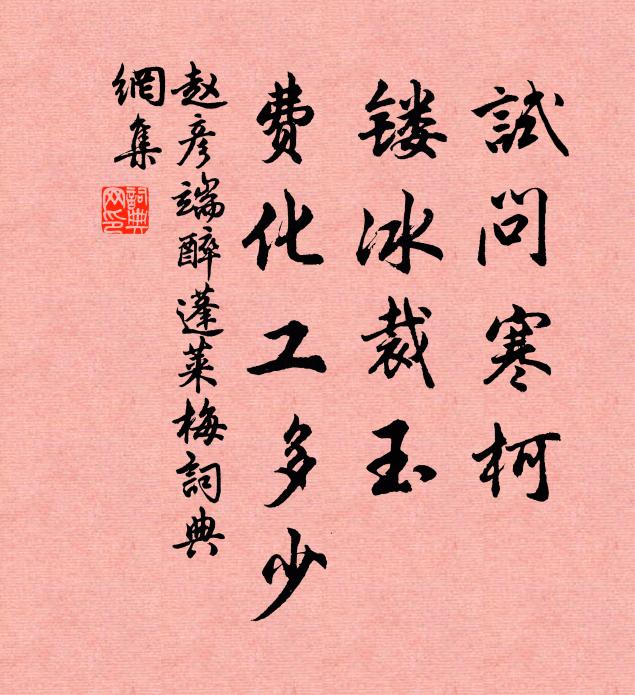 試問寒柯
镂冰裁玉
费化工多少
赵彦端醉蓬莱梅詞典
網集
詞典
网印